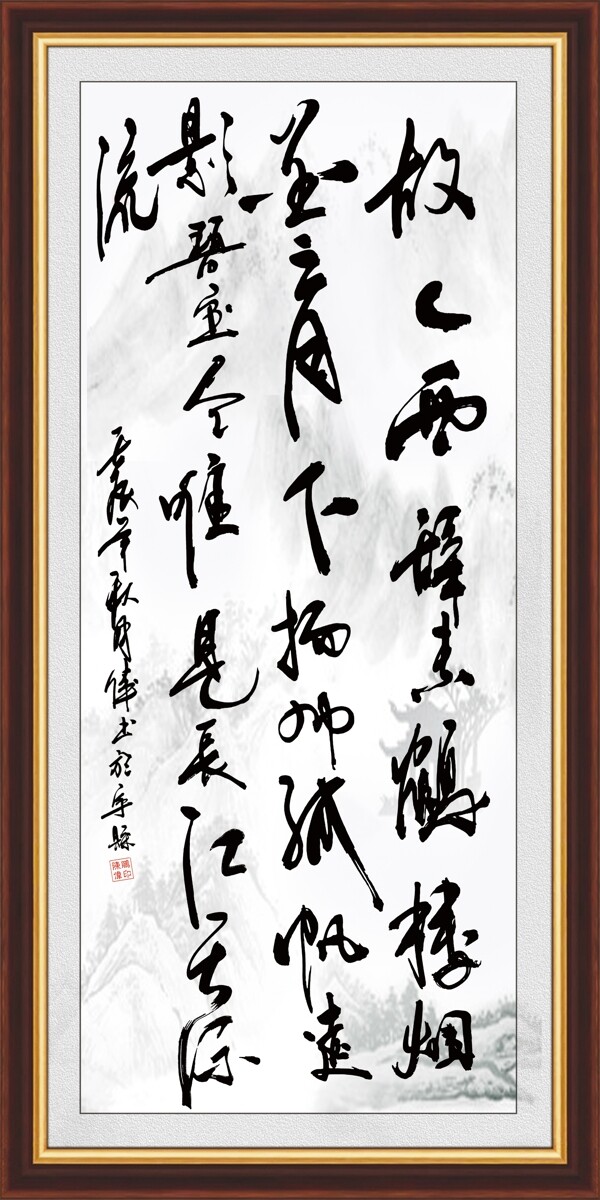 故人西辞黄鹤楼烟
花三月下扬州孤帆远
影碧空尽唯見長江天际
流
壬辰年秋月偉书於